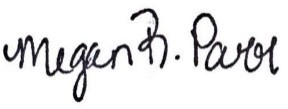 Megan R. Parr